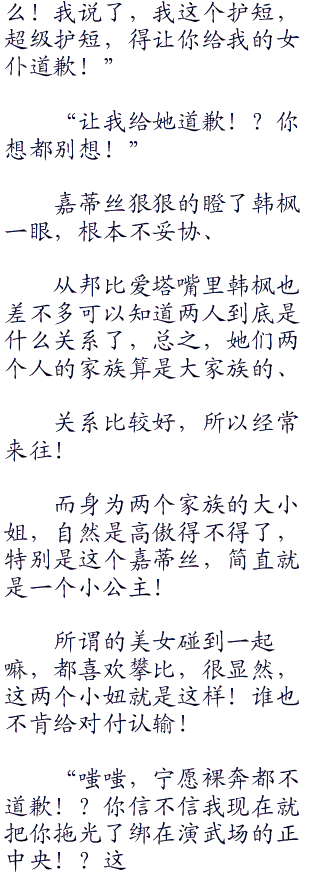 么！我说了，我这个护短，
超级护短，得让你给我的女
仆道歉！”
“让我给她道歉！？你
想都别想！”
嘉蒂丝狠狠的瞪了韩枫
一眼，根本不妥协、
从邦比爱塔嘴里韩枫也
差不多可以知道两人到底是
什么关系了，总之，她们两
个人的家族算是大家族的、
关系比较好，所以经常
来往！
而身为两个家族的大小
姐，自然是高傲得不得了，
特别是这个嘉蒂丝，简直就
是一个小公主！
所谓的美女碰到一起
嘛，都喜欢攀比，很显然，
这两个小妞就是这样！谁也
不肯给对付认输！
“嗤嗤，宁愿裸奔都不
道歉！？你信不信我现在就
把你拖光了绑在演武场的正
中央！？这